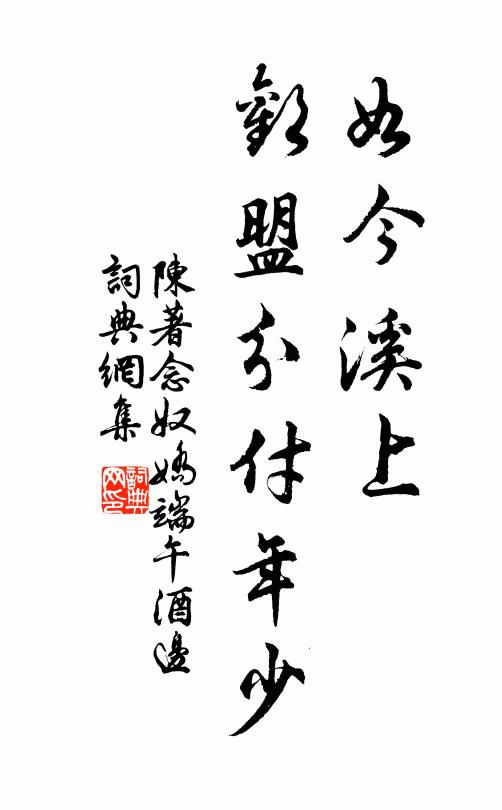 如今溪上
歡盟分付年少
陳著念奴嬌端午酒邊
詞典網集
詞典網印